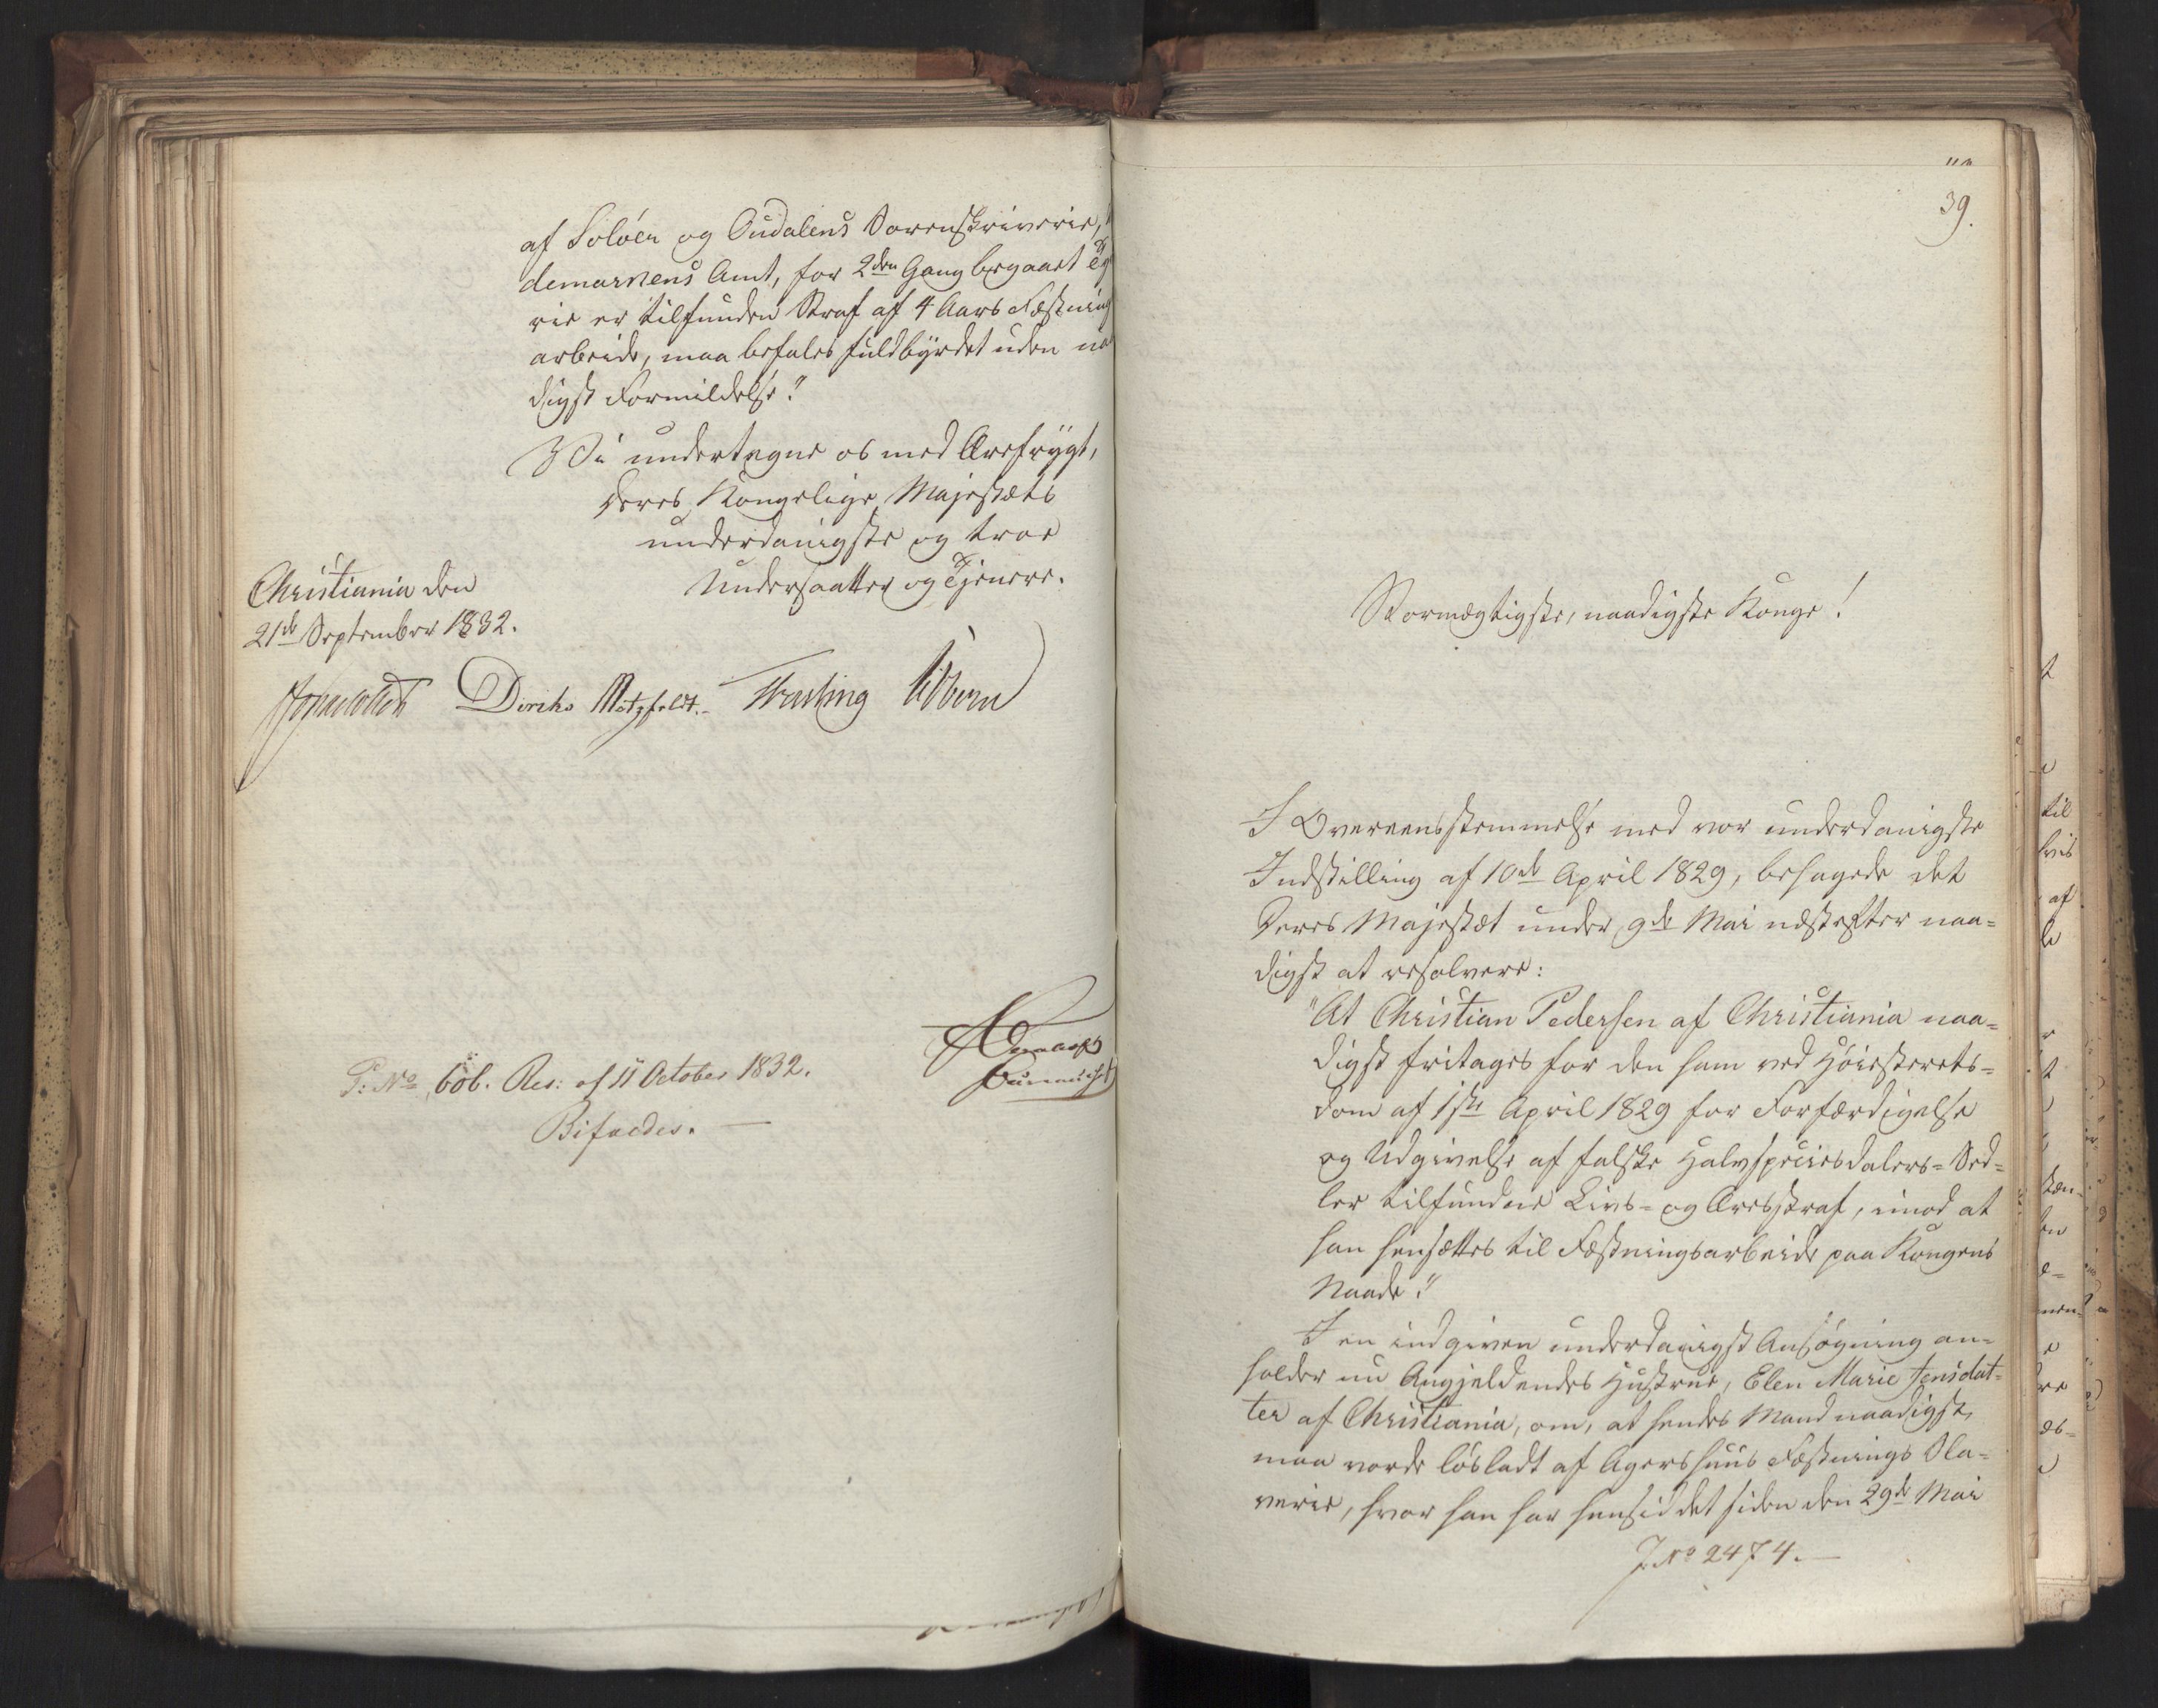 af Soløer og Oudalens Sorenskriverie,
demarkens Amt, for 2den Gang begaaet Ty
rie er tilfunden Straf af 4 Aars Fæstning
arbeide, maa befales fuldbyrdet uden naa
digst Formildelse."
Vi undertegne os med Ærefrygt,
Deres Kongelige Majestæts
underdanigste og troe
Undersaatter og Tjenere.
Christiania den
21de September 1832.
Diriks Motzfeldt. Fasting Vibe
P: No 606. Res: af 11 October 1832.
Bifaldes.
39.
Stormægtigste, naadigste Konge!
I Overeensstemmelse med vor underdanigste
Indstilling af 10de April 1829, behagede det
Deres Majestæt under 9de Mai næstefter naa=
digst at resolvere:
"At Christian Pedersen af Christiania naa=
digst fritages for den ham ved Høiesterets=
dom af 1ste April 1829 for Forfærdigelse
og Udgivelse af falske Halvspeciesdalers=Sed=
ler tilfundne Livs= og Æresstraf, imod at
han hensættes til Fæstningsarbeide paa Kongens
Naade."
I en indgiven underdanigst Ansøgning an=
holder nu Angjeldendes Hustrue, Elen Marie Jensdat=
ter af Christiania, om, at hendes Mand naadigst
maa vorde løsladt af Agershuus Fæstnings Sla=
verie, hvor han har hensiddet siden den 29de Mai
J. No 2474.